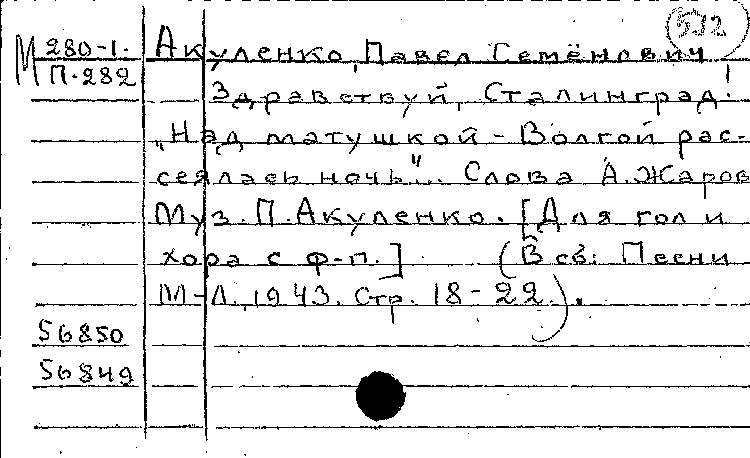 532
М 280-1. Акуленко, Павел Семёнович
П-282
Здравствуй, Сталинград!
„Над матушкой - Волгой рас-
сеялась ночь"... Слова А. Жаров
Муз. П. Акуленко. [Для гол и
хора с ф-п.] (В сб: Песни
М-Л, 1943. Стр. 18-22).
56850
56849